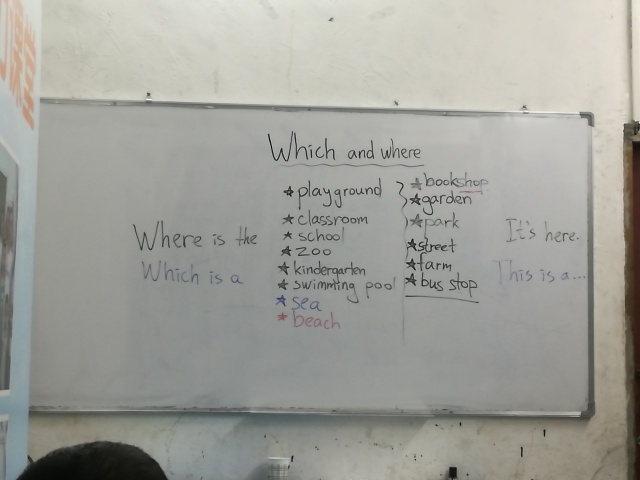 课堂
Which and where
Where is the
Which is a
* playground
* classroom
* school
* zoo
* kindergarten
* swimming pool
* sea
* beach
* bookshop
* garden
* park
* street
* farm
* bus stop
It's here.
This is a...